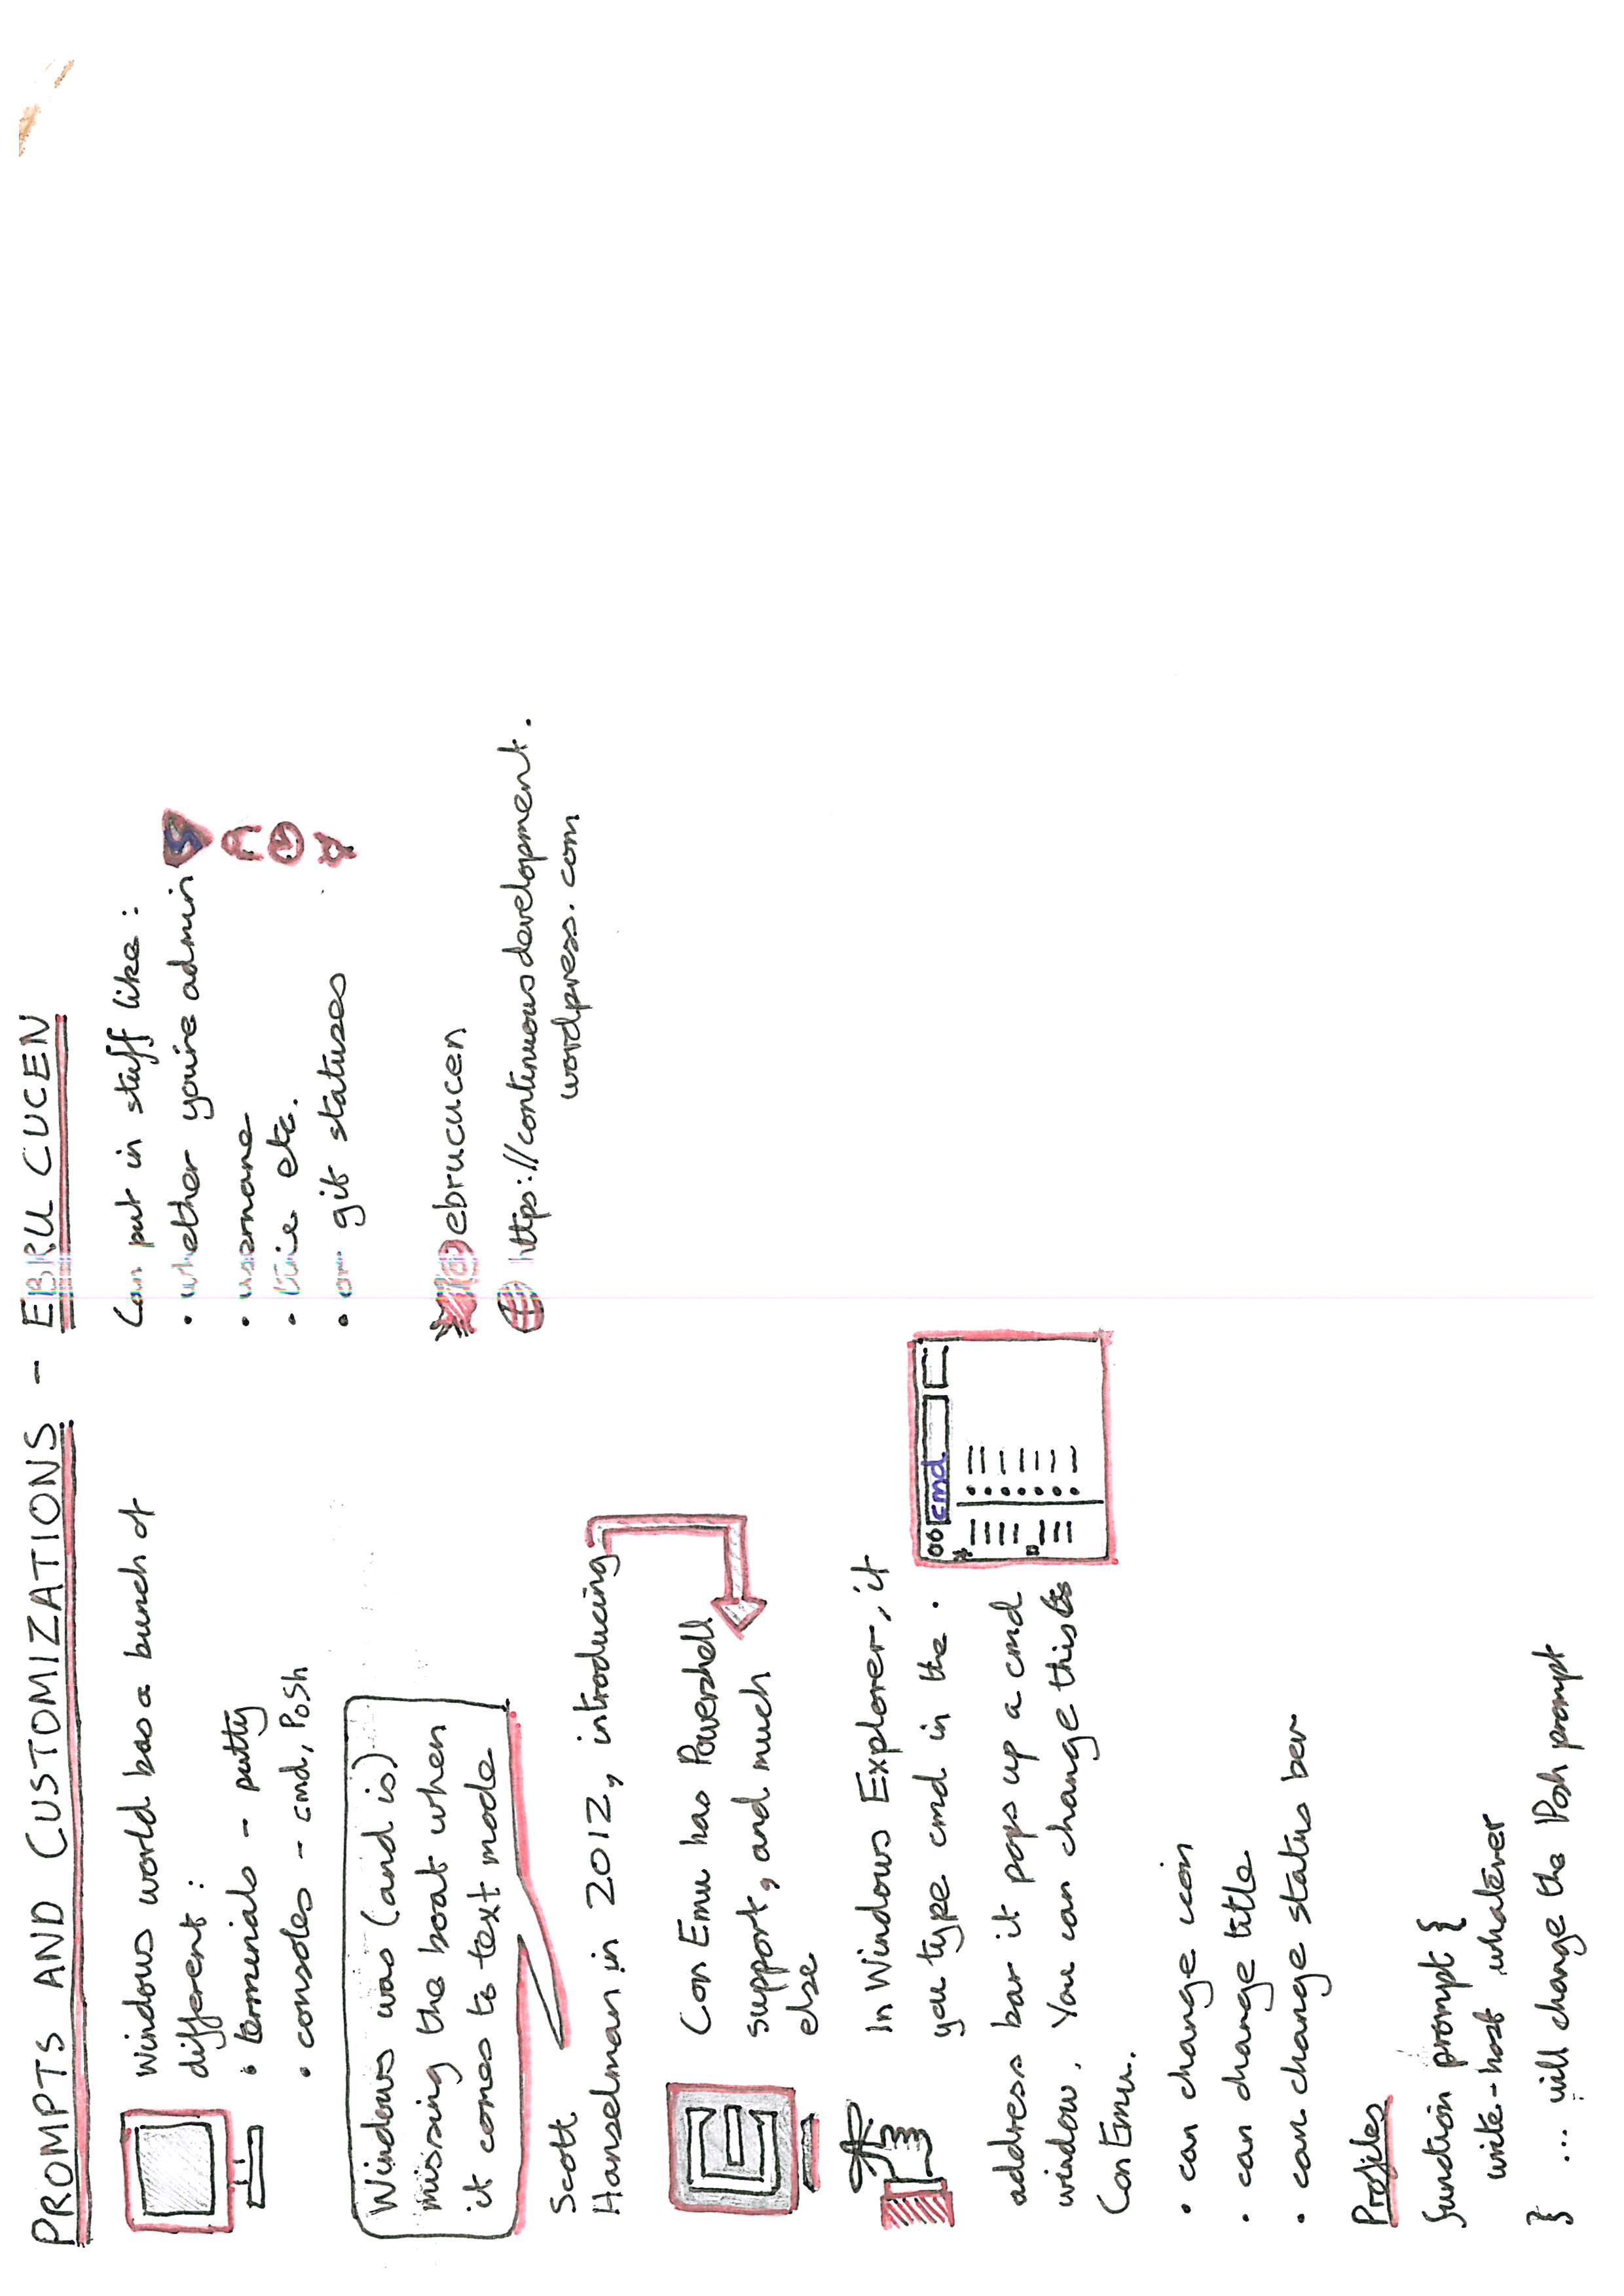 PROMPTS AND CUSTOMIZATIONS - EBRU CUCEN
Windows world has a bunch of
different :
• terminals - putty
• consoles - cmd, PoSh
Windows was (and is)
missing the boat when
it comes to text mode
Scott
Hanselman in 2012, introducing
Con Emu has Powershell
support, and much
else
In Windows Explorer, if
you type cmd in the
cmd
address bar it pops up a cmd
window. You can change this to
Con Emu.
• can change icon
• can change title
• can change status bar
Profiles
function prompt {
write-host whatever
} ... will change the Posh prompt
Can put in stuff like :
• whether you're admin S
• username
• time etc.
• or git statuses
@ebrucucen
https://continuousdevelopment.
wordpress.com